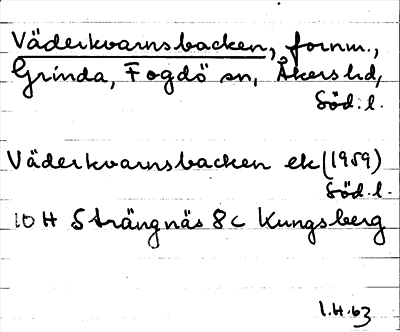 Väderkvarnsbacken, fornm.,
Grinda, Fogdö sn, Åkers hd,
Söd. l.
Väderkvarnsbacken ek (1959)
Söd. l.
10 H Strängnäs 8c Kungsberg
I.H. 63